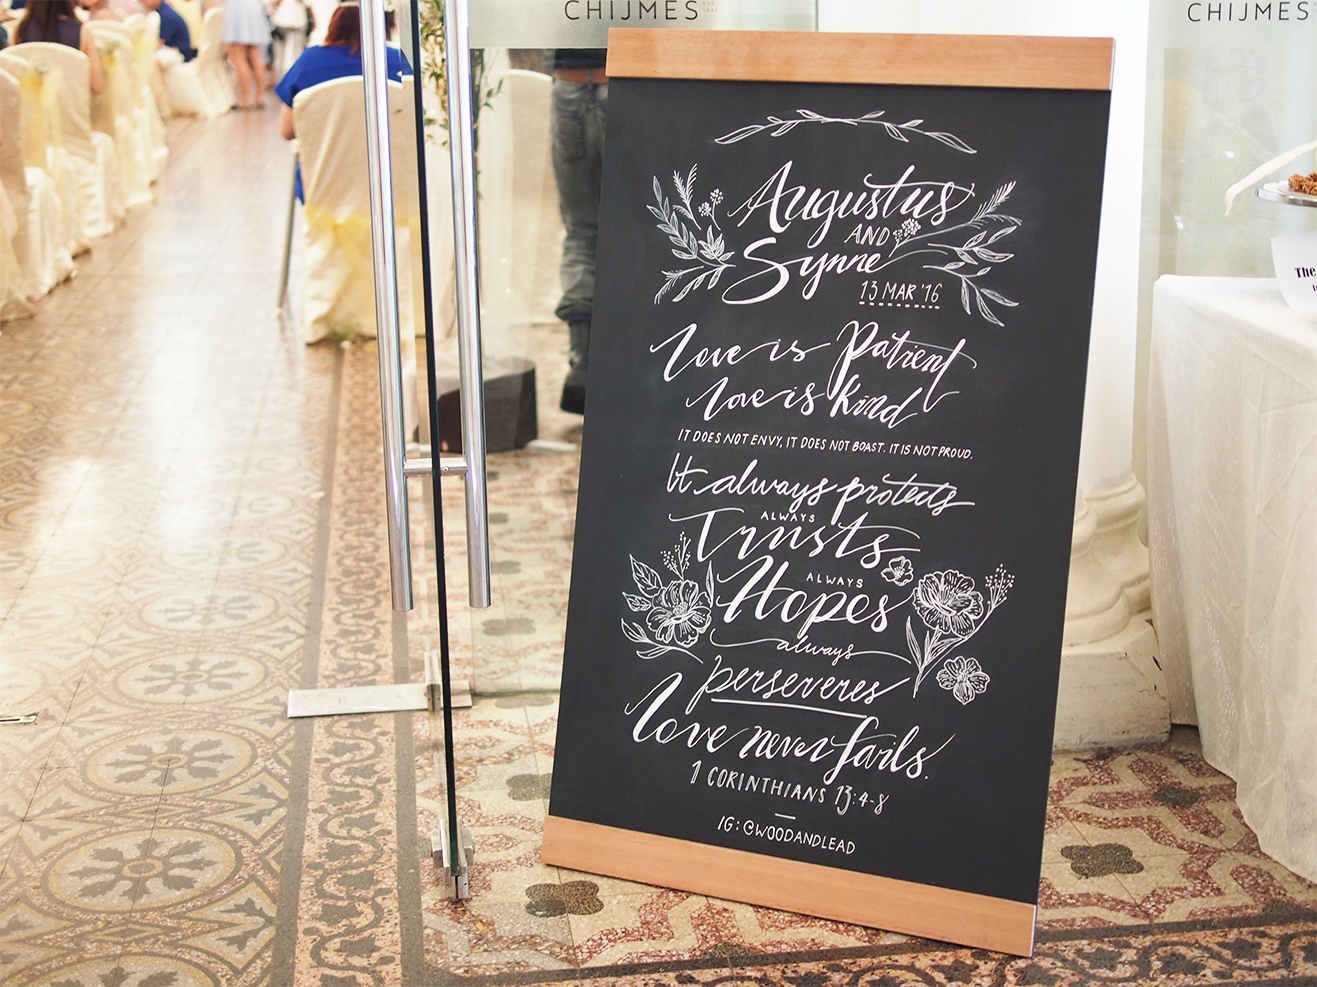 CHIJMES
CHIJMES
Augustus
AND
Synne
13 MAR '16
Love is Patient
Love is Kind
IT DOES NOT ENVY, IT DOES NOT BOAST. IT IS NOT PROUD.
It always protects
ALWAYS
Trusts
ALWAYS
Hopes
always
perseveres
Love never fails.
1 CORINTHIANS 13:4-8
IG: @WOODANDLEAD
The